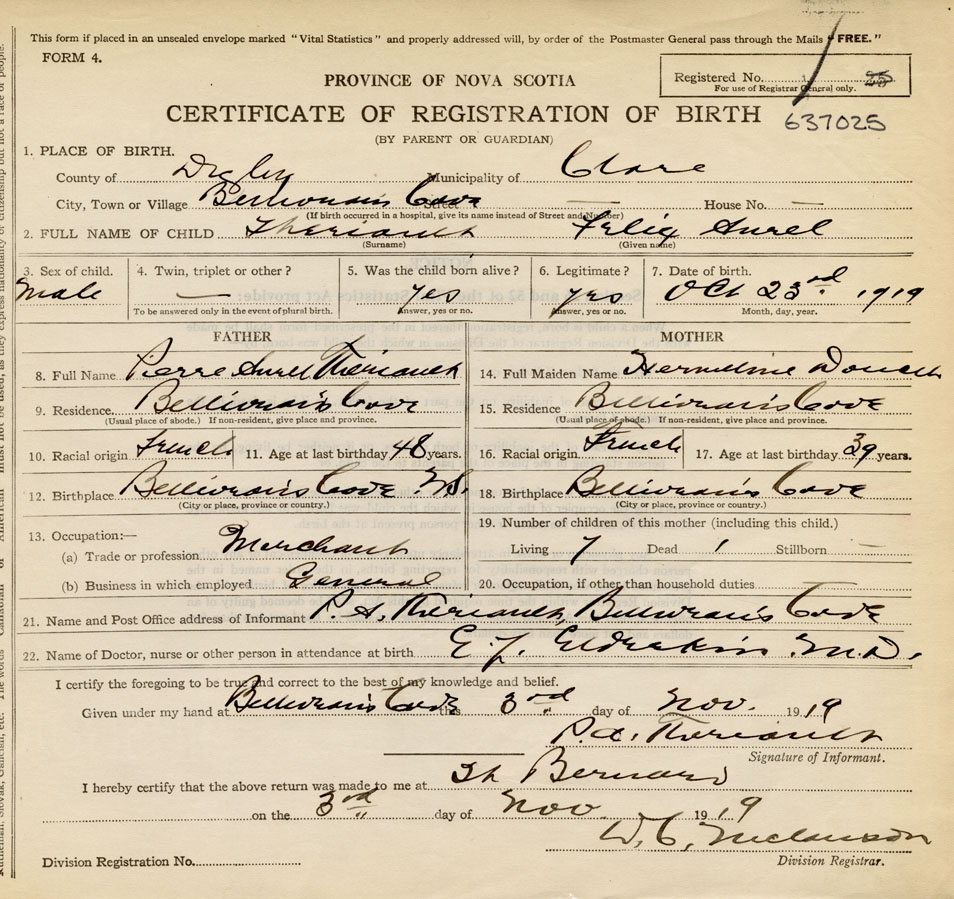 This form if placed in an unsealed envelope marked "Vital Statistics" and properly addressed will, by order of the Postmaster General pass through the Mails "FREE."
FORM 4.
Registered No. 25
For use of Registrar General only.
PROVINCE OF NOVA SCOTIA
CERTIFICATE OF REGISTRATION OF BIRTH
637025
(BY PARENT OR GUARDIAN)
1. PLACE OF BIRTH.
County of Digby Municipality of Clare
City, Town or Village Belliveau's Cove Street — House No. —
(If birth occurred in a hospital, give its name instead of Street and Number)
2. FULL NAME OF CHILD Theriault Felix Aurel
(Surname) (Given name)
3. Sex of child. 4. Twin, triplet or other? 5. Was the child born alive? 6. Legitimate? 7. Date of birth.
Male — yes yes Oct 23rd 1919
To be answered only in the event of plural birth. Answer, yes or no. Answer, yes or no. Month, day, year.
FATHER MOTHER
8. Full Name Pierre Aurel Theriault 14. Full Maiden Name Doucet
9. Residence Belliveau's Cove 15. Residence Belliveau's Cove
(Usual place of abode.) If non-resident, give place and province. (Usual place of abode.) If non-resident, give place and province.
10. Racial origin French 11. Age at last birthday 48 years. 16. Racial origin French 17. Age at last birthday 39 years.
12. Birthplace Belliveau's Cove N.S. 18. Birthplace Belliveau's Cove
(City or place, province or country.) (City or place, province or country.)
13. Occupation:— 19. Number of children of this mother (including this child.)
(a) Trade or profession Merchant Living 7 Dead 1 Stillborn —
(b) Business in which employed General 20. Occupation, if other than household duties —
21. Name and Post Office address of Informant P. A. Theriault, Belliveau's Cove
22. Name of Doctor, nurse or other person in attendance at birth E. J. Elderkin M.D.
I certify the foregoing to be true and correct to the best of my knowledge and belief.
Given under my hand at Belliveau's Cove this 3rd day of Nov. 1919
P. A. Theriault
Signature of Informant.
I hereby certify that the above return was made to me at St Bernard
on the 3rd day of Nov 1919
W. C. Melanson
Division Registrar.
Division Registration No.